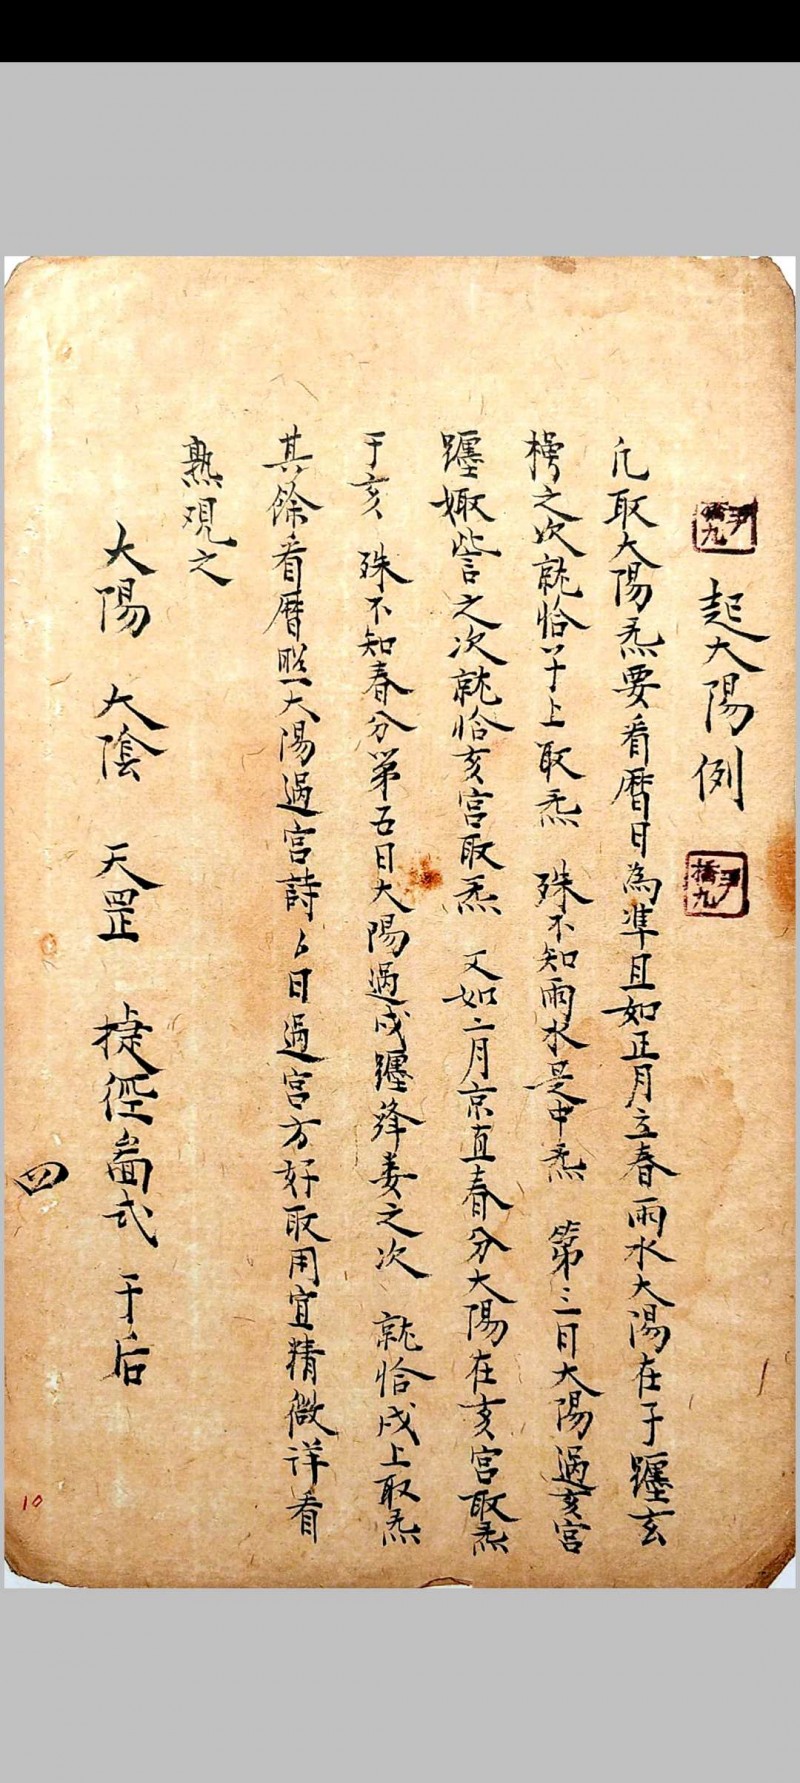 起大陽例
凡取大陽炁要看曆日為準且如正月立春雨水大陽在子躔玄
枵之次就恰子上取炁 殊不知雨水是中炁 第三日大陽過亥宮
躔娵訾之次就恰亥宮取炁 又如二月京直春分大陽在亥宮取炁
于亥 殊不知春分第五日大陽過戌躔降娄之次 就恰戌上取炁
其餘看曆照大陽過宮詩 日過宮方好取用宜精微详看
熟观之
大陽 大陰 天罡 捷徑啚式 于后
四
10